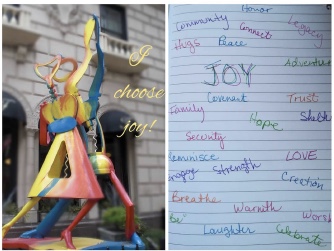 I
choose
joy!
Honor
Community Connect Legacy
Hugs Peace
Adventure
JOY
Connect Trust
Family
Hope
Security
Reminisce LOVE
Strength
Creation
Breathe
Warmth
Laughter Celebrate